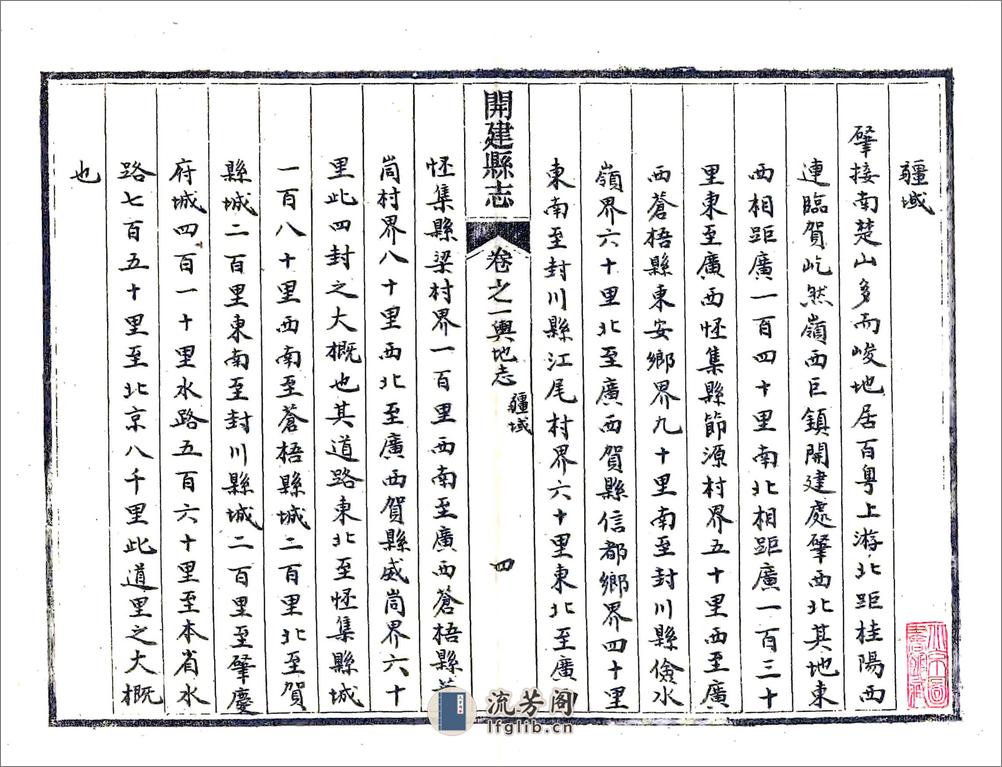 疆域
肇接南楚山多而峻地居百粵上游北距桂陽西
連臨賀屹然嶺西巨鎮開建處肇西北其地東
西相距廣一百四十里南北相距廣一百三十
里東至廣西懷集縣節源村界五十里西至廣
西蒼梧縣東安鄉界九十里南至封川縣儉水
嶺界六十里北至廣西賀縣信都鄉界四十里
東南至封川縣江尾村界六十里東北至廣
開建縣志 卷之一輿地志 疆域 四
懷集縣梁村界一百里西南至廣西蒼梧縣
峝村界八十里西北至廣西賀縣威峝界六十
里此四封之大概也其道路東北至懷集縣城
一百八十里西南至蒼梧縣城二百里北至賀
縣城二百里東南至封川縣城二百里至肇慶
府城四百一十里水路五百六十里至本省水
路七百五十里至北京八千里此道里之大概
也
流芳阁
lfglib.cn